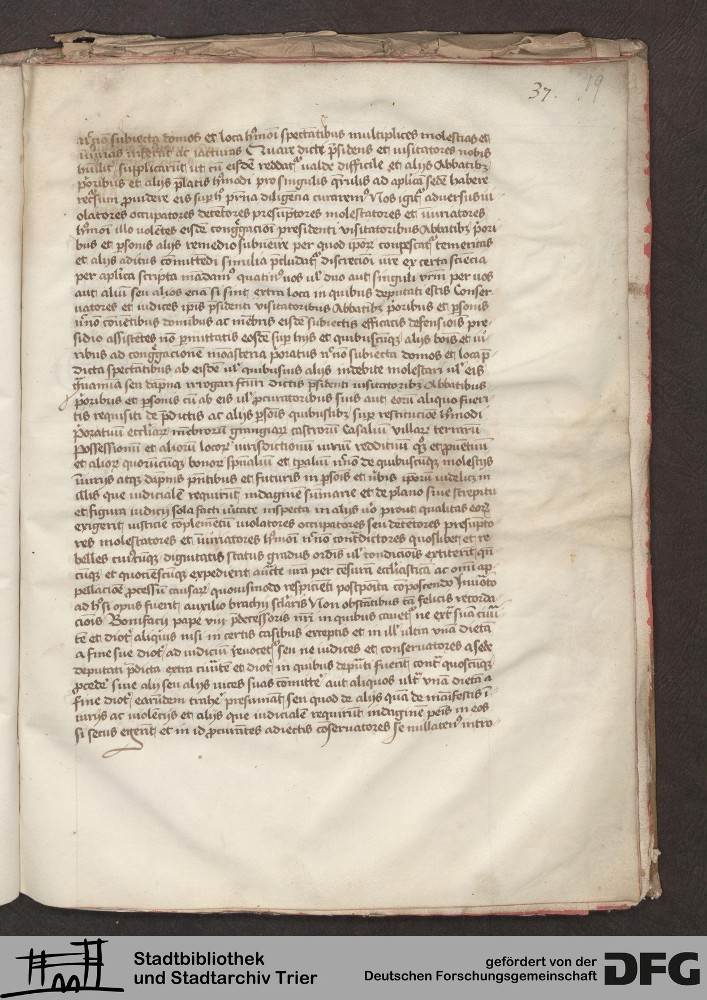 37. 19
nec non subiecta domos et loca hmoi spectatibus multiplices molestias et
iniurias inferat ac iacturas Quare dicti psidens et visitatores nobis
humilit supplicarut ut cu eisde reddat valde difficile et alijs Abbatibz
prioribus et alijs platis hmodi pro singulis qrulis ad aplica sede habere
recursum puidere eis sup h prna diligecia curarem Nos igit adversus vi
olatores occupatores detetores presuptores molestatores et iniuriatores
hmoi illo voletes eisde cogregacioi presidenti visitatoribus Abbatibz priori
bus et psonis alijs remedio subueire per quod ipor compescat temeritas
et alijs aditus comittedi similia pcludat discrecioi vre ex certa sciecia
per aplica scripta madam quatinus vos ul duo aut singuli vrm per vos
aut aliu seu alios ecia si sint extra loca in quibus deputati estis Conser
uatores et iudices ipis psidenti visitatoribus Abbatibz prioribus et psonis
nec no couetibus domibus ac mebris eisde subiectis efficacis defensiois pre
sidio assistetes no pmittatis eosde sup hijs et quibuscuqz alijs bois et iu
ribus ad congregacione moasteria prioratus nec no subiecta domos et loca p
dicta spectatibus ab eisde ul quibusuis alijs indebite molestari ul eis
grauamia seu dapna irrogari ftur dictis psidenti visitatoribz Abbatibus
prioribus et psonis cu ab eis ul pcuratoribus suis aut eoru aliquo fueri
tis requisiti de pdictis ac alijs psois quibuslibz sup restitucioe hmodi
prioratuu eccliar mebrorum grangiar castroru Casaliu villar terraru
possessionu et alioru locor iurisdictionu iuriu reddituu qz et puetuu
et alior quorucuqz bonor spualiu et tpaliu nec no de quibuscuqz molestijs
iniurijs atqz dapnis pntibus et futuris in psois et rebis iporu videlicz in
illis que iudiciale requirut indagine sumarie et de plano sine strepitu
et figura iudicij sola facti veritate inspecta in alijs vo prout qualitas eor
exigerit iusticie coplemetu violatores occupatores seu detetores presupto
res molestatores et iniuriatores hmoi nec no contradictores quoslibet et re
belles cuiuscuqz dignitatis status gradus ordis ul condiciois extiterit qn
cuqz et quociescuqz expedierit aucte nra per cesura ecclastica ac omi ap
pellacioe pcessuu causar quouismodo respicieti postposita composcendo Inuocato
ad h si opus fuerit auxilio brachij sclaris Non obstatibus ta felicis recorda
ciois Bonifacij pape viij pdecessoris nri in quibus cauet ne extra sua ciui
te et dioc aliquis nisi in certis casibus exceptis et in ill ultra una dieta
a fine sue dioc ad iudiciu reuocet seu ne iudices et conseruatores a sede
deputati pdicta extra ciuite et dioc in quibus deputi fuerit contra quoscuqz
pcedere siue alij seu alijs vices suas comitte aut aliquos ultra una dieta a
fine dioc earundem trahe presumant seu quod de alijs qua de manifestis i
iurijs ac violecijs et alijs que iudiciale requirut indagine penis in eos
si secus egerit et in id pcurates adiectis coseruatores se nullaten intro
Stadtbibliothek
und Stadtarchiv Trier
gefördert von der
Deutschen Forschungsgemeinschaft
DFG